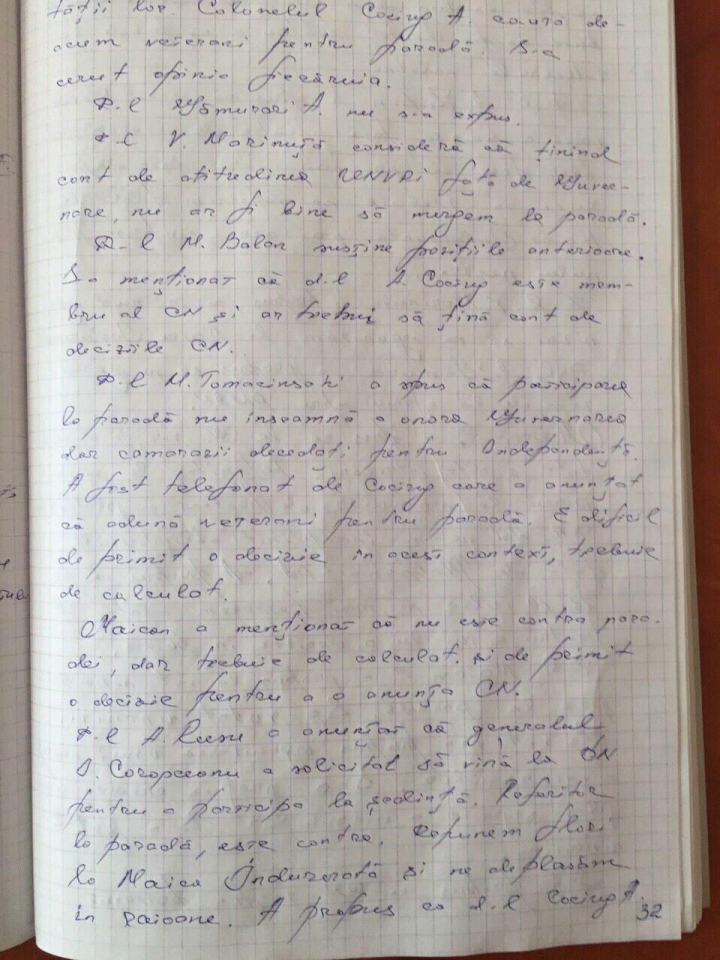 tății lor. Colonelul Cociug A. caută de-
acum veterani pentru paradă. S-a
cerut opinia fiecăruia.
D-l A. nu s-a expus.
D-l V. Marinuță consideră că ținînd
cont de atitudinea UNVRI față de guver-
nare, nu ar fi bine să mergem la paradă.
D-l M. Balan susține pozițiile anterioare.
S-a menționat că d-l A. Cociug este mem-
bru al CN și ar trebui să țină cont de
deciziile CN.
D-l M. Tomacinschi a spus că participarea
la paradă nu înseamnă a onora guvernarea
dar camarazii decedați pentru Independență.
A fost telefonat de Cociug care a anunțat
că adună veterani pentru paradă. E dificil
de primit o decizie în acest context, trebuie
de calculat.
Maican a menționat că nu este contra para-
dei, dar trebuie de calculat și de primit
o decizie pentru a o anunța CN.
D-l A. Rusu a anunțat că generalul
I. Coropceanu a solicitat să vină la CN
pentru a participa la ședință. Referitor
la paradă, este contra. Depunem flori
la Maica Îndurerată și ne deplasăm
în raioane. A propus ca d-l Cociug A.
32